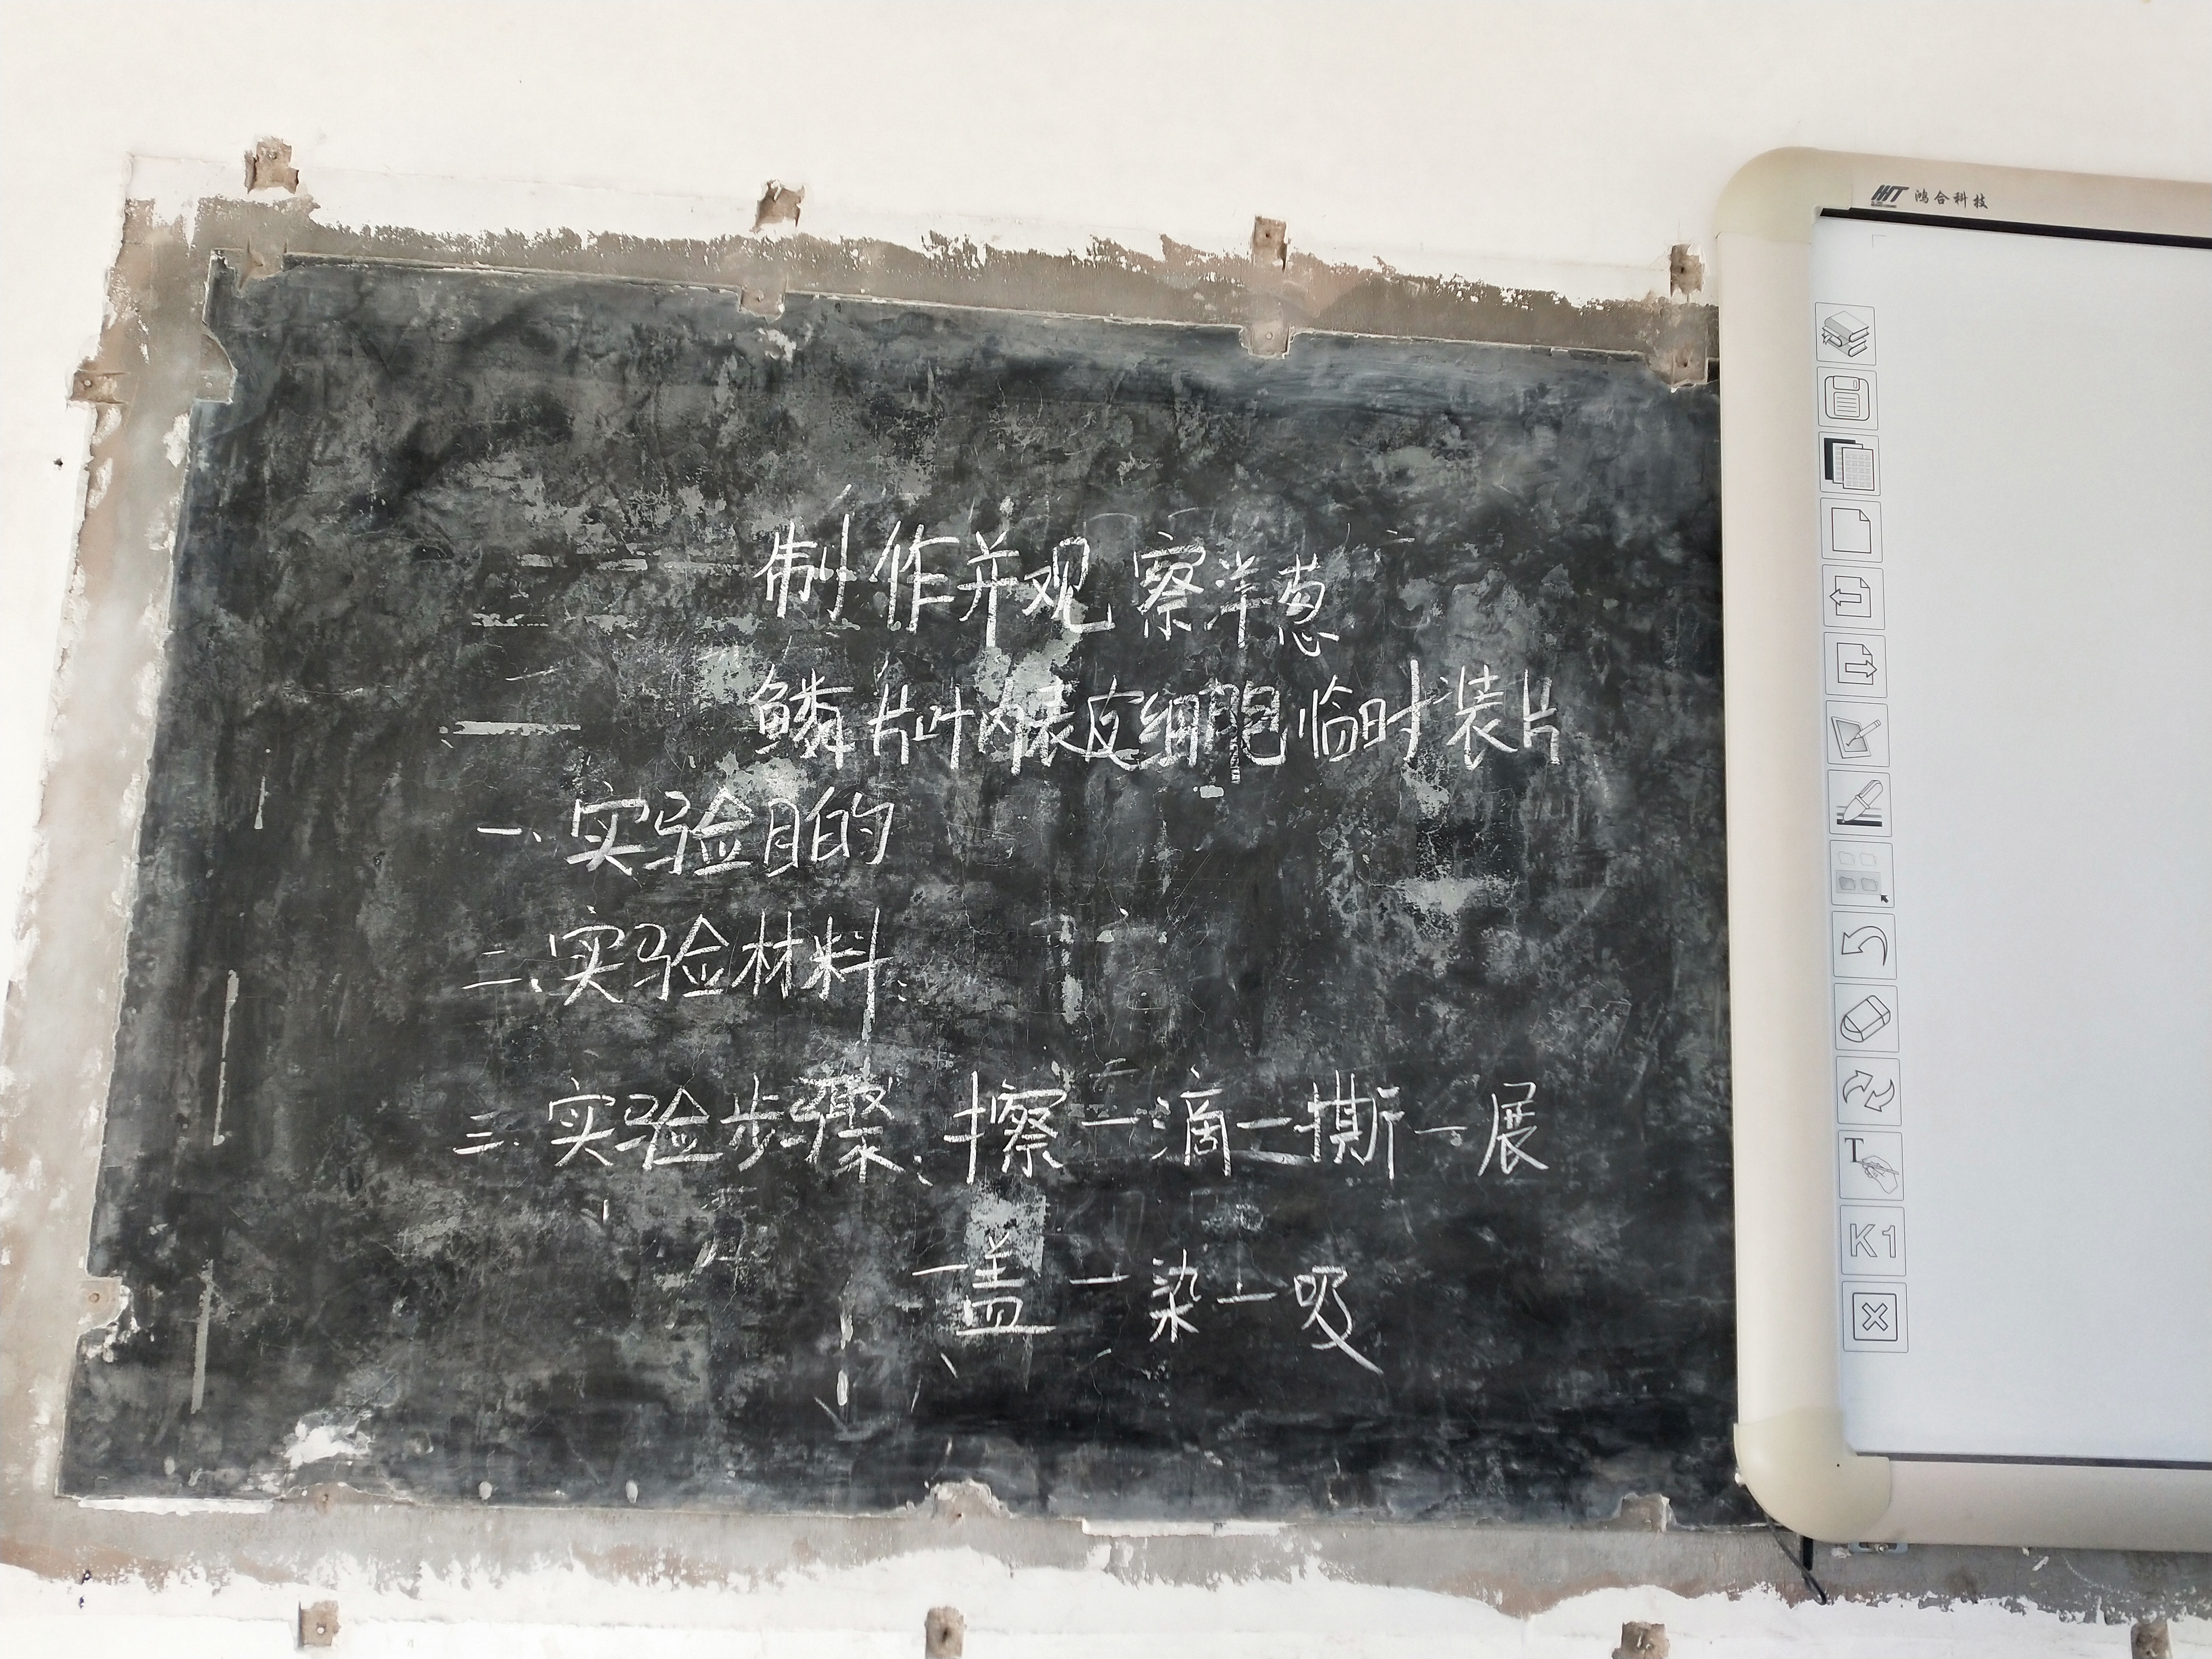 制作并观察洋葱
鳞片叶内表皮细胞临时装片
一、实验目的
二、实验材料:
三、实验步骤:擦一滴一撕一展
一盖一染一吸
HHT 鸿合科技
T
K1